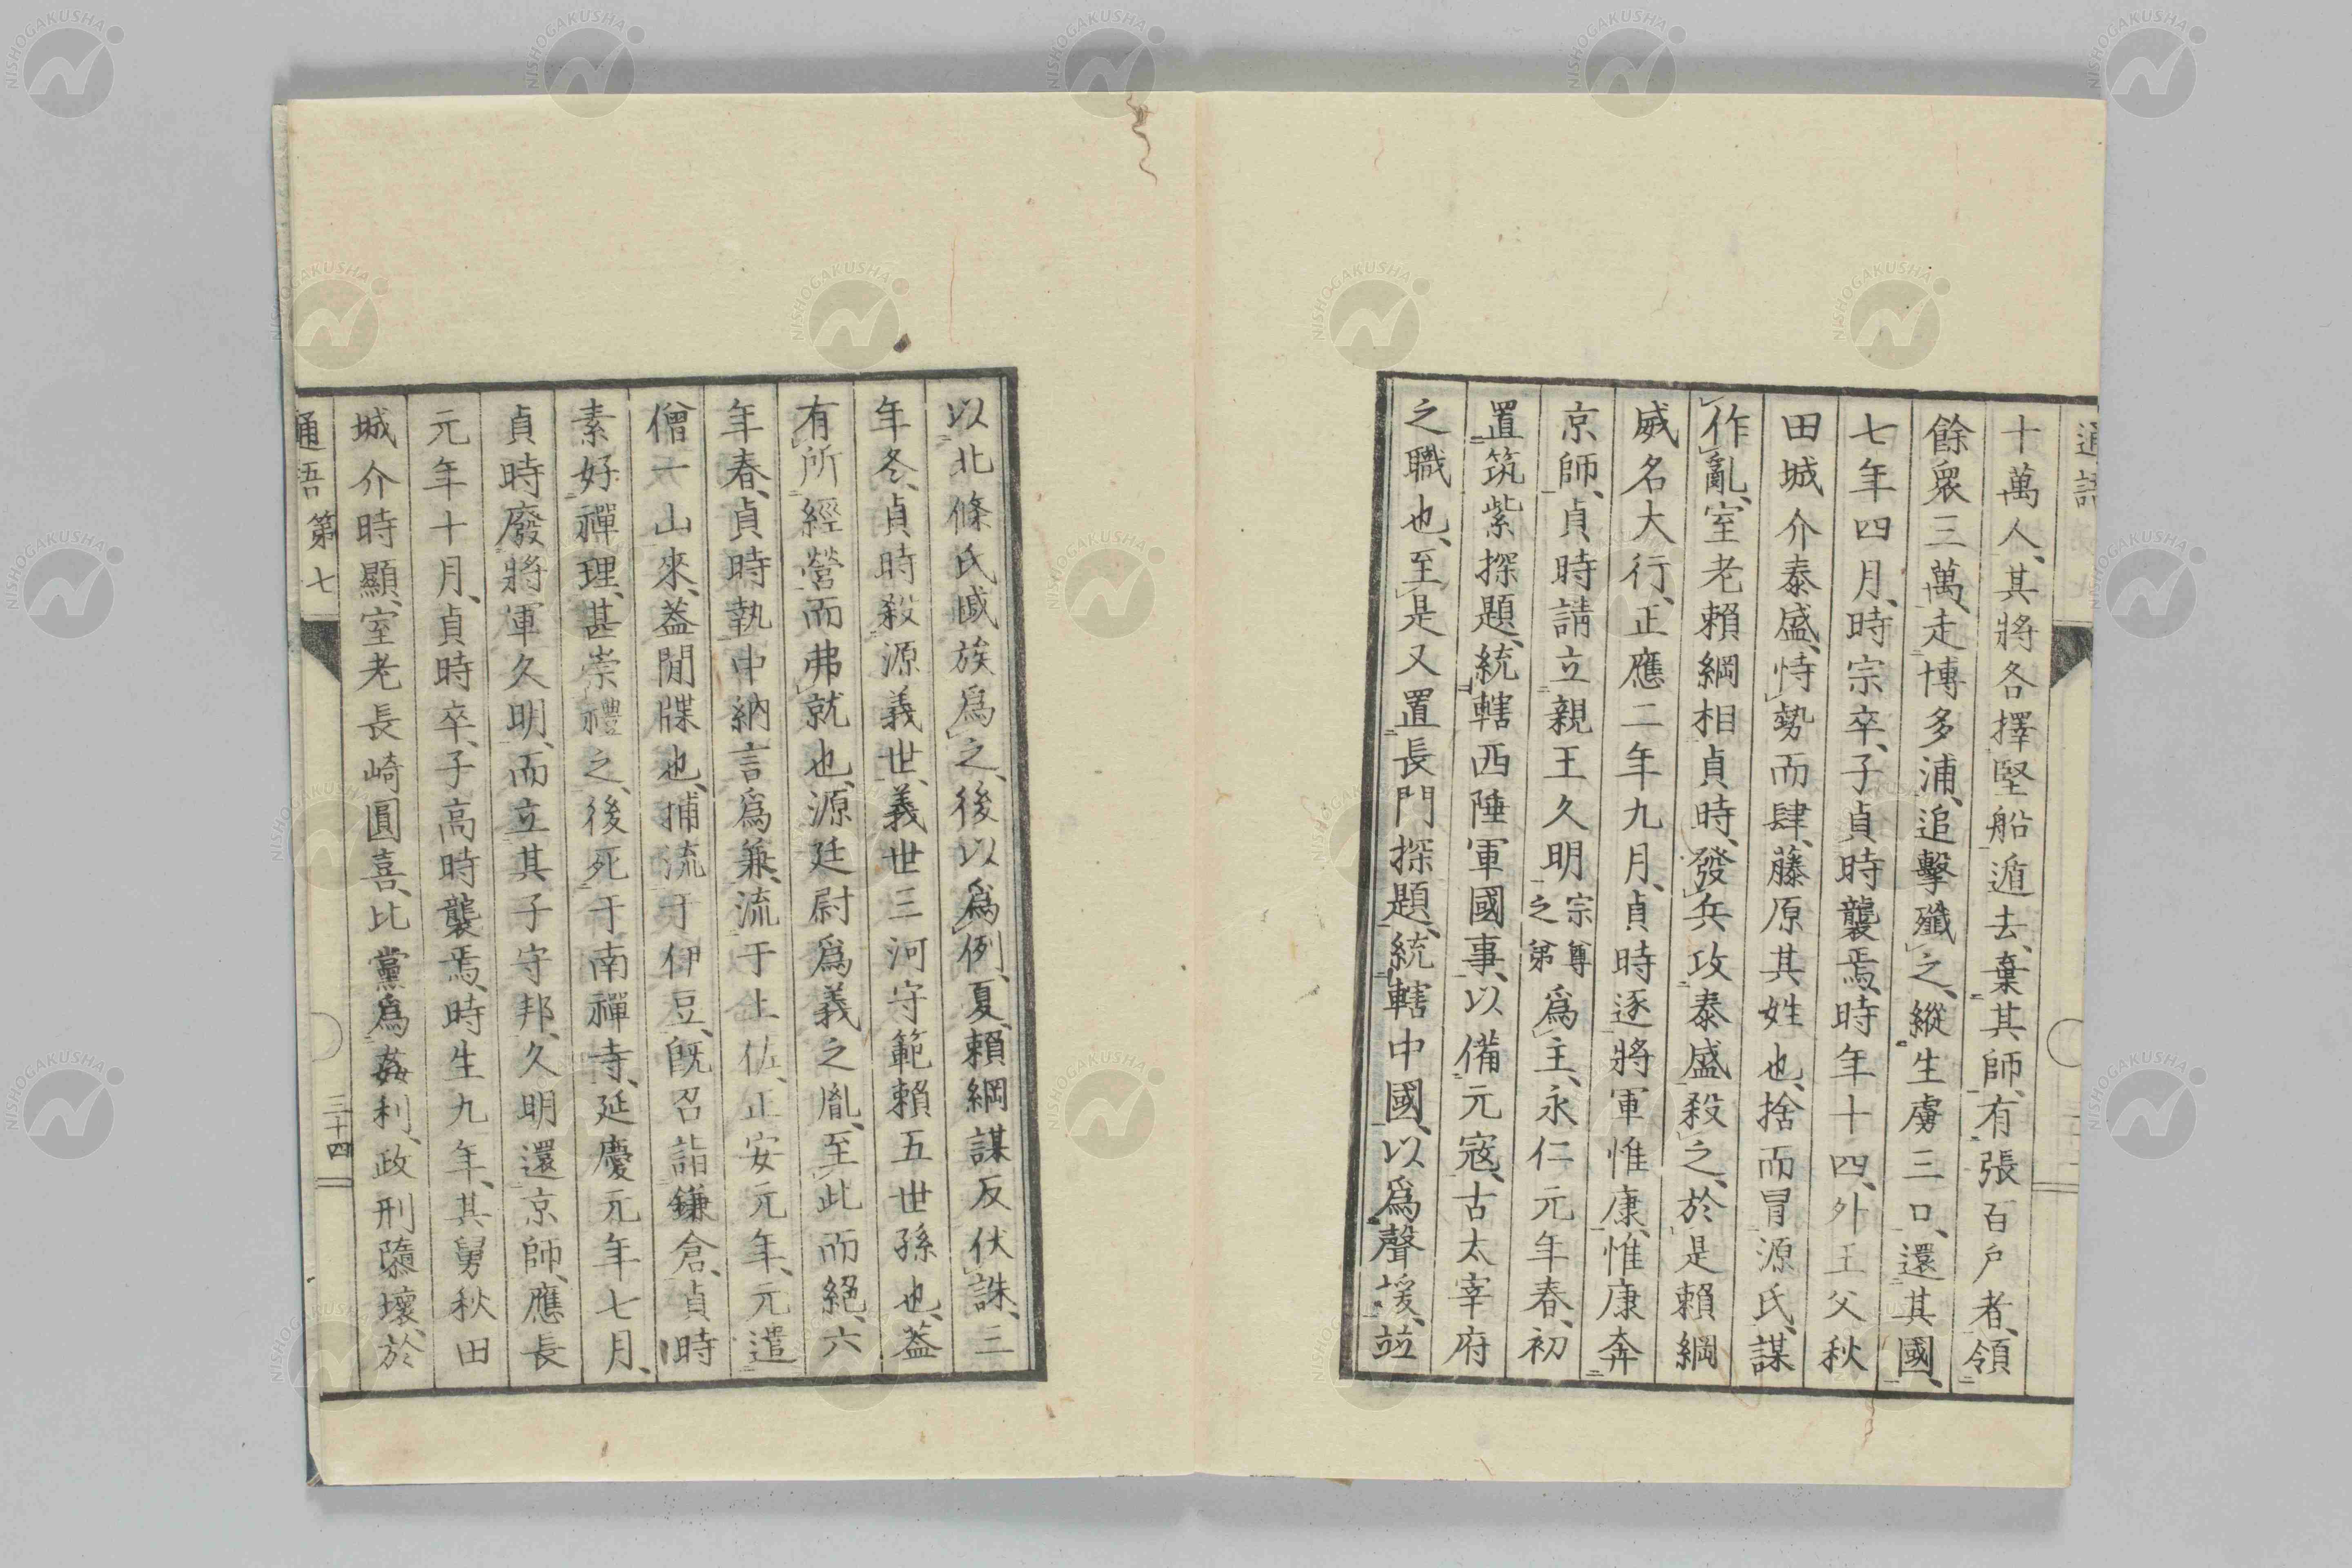 通語
十萬人、其將各擇堅船遁去、棄其師、有張百戶者、領
餘衆三萬、走博多浦、追擊殲之、縱生虜三口、還其國、
七年四月、時宗卒、子貞時襲焉、時年十四、外王父秋
田城介泰盛、恃勢而肆、藤原其姓也、捨而冒源氏、謀
作亂、室老賴綱相貞時、發兵攻泰盛殺之、於是賴綱
威名大行、正應二年九月、貞時逐將軍惟康、惟康奔
京師、貞時請立親王久明宗尊之弟爲主、永仁元年春、初
置筑紫探題、統轄西陲軍國事、以備元寇、古太宰府
之職也、至是又置長門探題、統轄中國、以爲聲援、竝
以北條氏戚族爲之、後以爲例、夏、賴綱謀反伏誅、三
年冬、貞時殺源義世、義世三河守範賴五世孫也、蓋
有所經營而弗就也、源廷尉爲義之胤、至此而絕、六
年春、貞時執中納言爲兼、流于土佐、正安元年、元遣
僧一山來、蓋間牒也、捕流于伊豆、旣召詣鎌倉、貞時
素好禪理、甚崇禮之、後死于南禪寺、延慶元年七月、
貞時廢將軍久明、而立其子守邦、久明還京師、應長
元年十月、貞時卒、子高時襲焉、時生九年、其舅秋田
城介時顯、室老長崎圓喜、比黨爲姦利、政刑隳壞、於
通語 第七 三十四
NISHOGAKUSHA